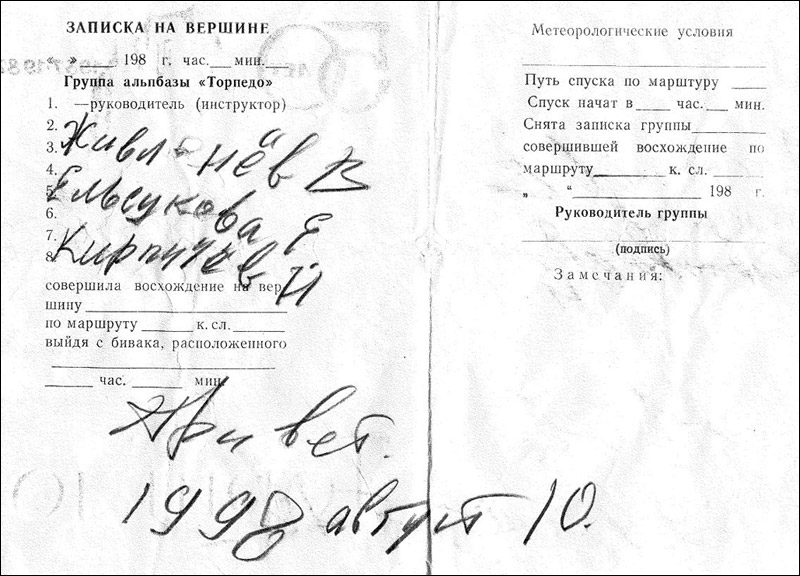 ЗАПИСКА НА ВЕРШИНЕ
„ “ 198 г. час. мин.
Группа альпбазы «Торпедо»
1. —руководитель (инструктор)
2.
3. Живлюнёв В
4.
5. Ельсукова Я
6.
7.
8. Кирпичёв И
совершила восхождение на вер-
шину
по маршруту к. сл.
выйдя с бивака, расположенного
час. мин.
Привет.
1998 август 10.
Метеорологические условия
Путь спуска по марштуру
Спуск начат в час. мин.
Снята записка группы
совершившей восхождение по
маршруту к. сл.
„ “ 198 г.
Руководитель группы
(подпись)
Замечания: